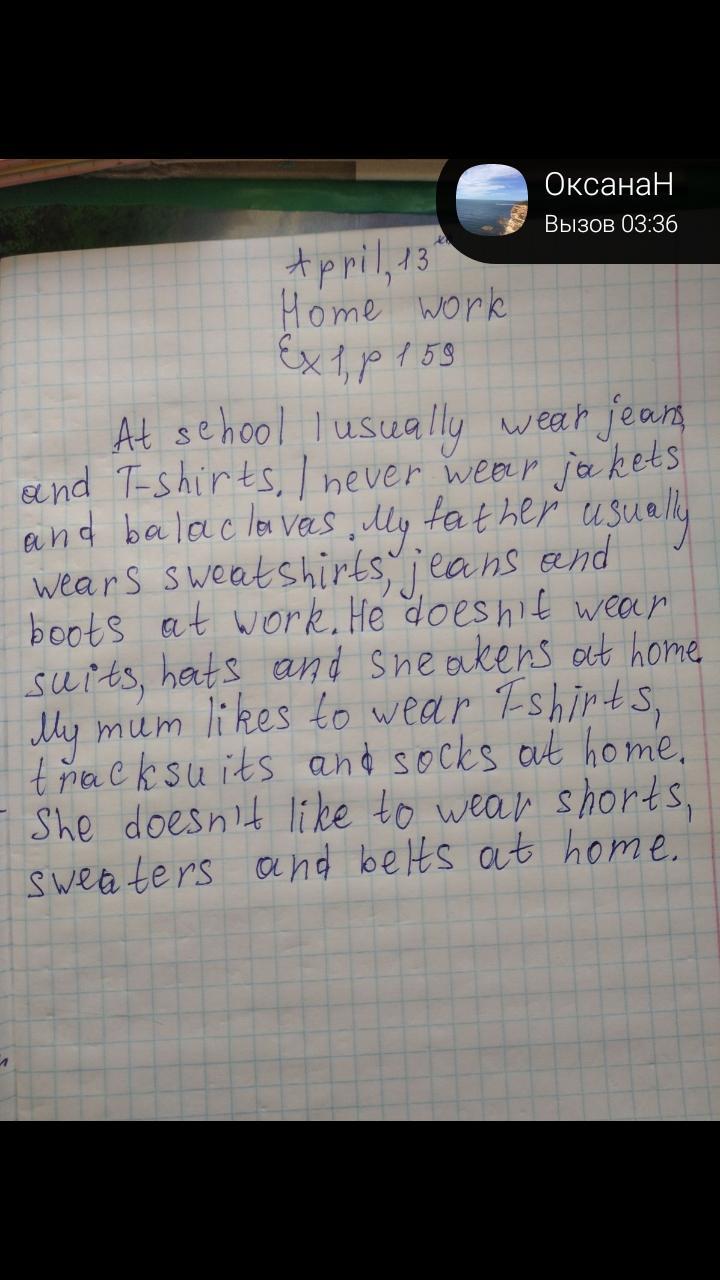 ОксанаН
Вызов 03:36
April, 13th
Home work
Ex 1, p 159
At school I usually wear jeans
and T-shirts. I never wear jakets
and balaclavas. My father usually
wears sweatshirts, jeans and
boots at work. He doesn't wear
suits, hats and sneakers at home.
My mum likes to wear T-shirts,
tracksuits and socks at home.
She doesn't like to wear shorts,
sweaters and belts at home.